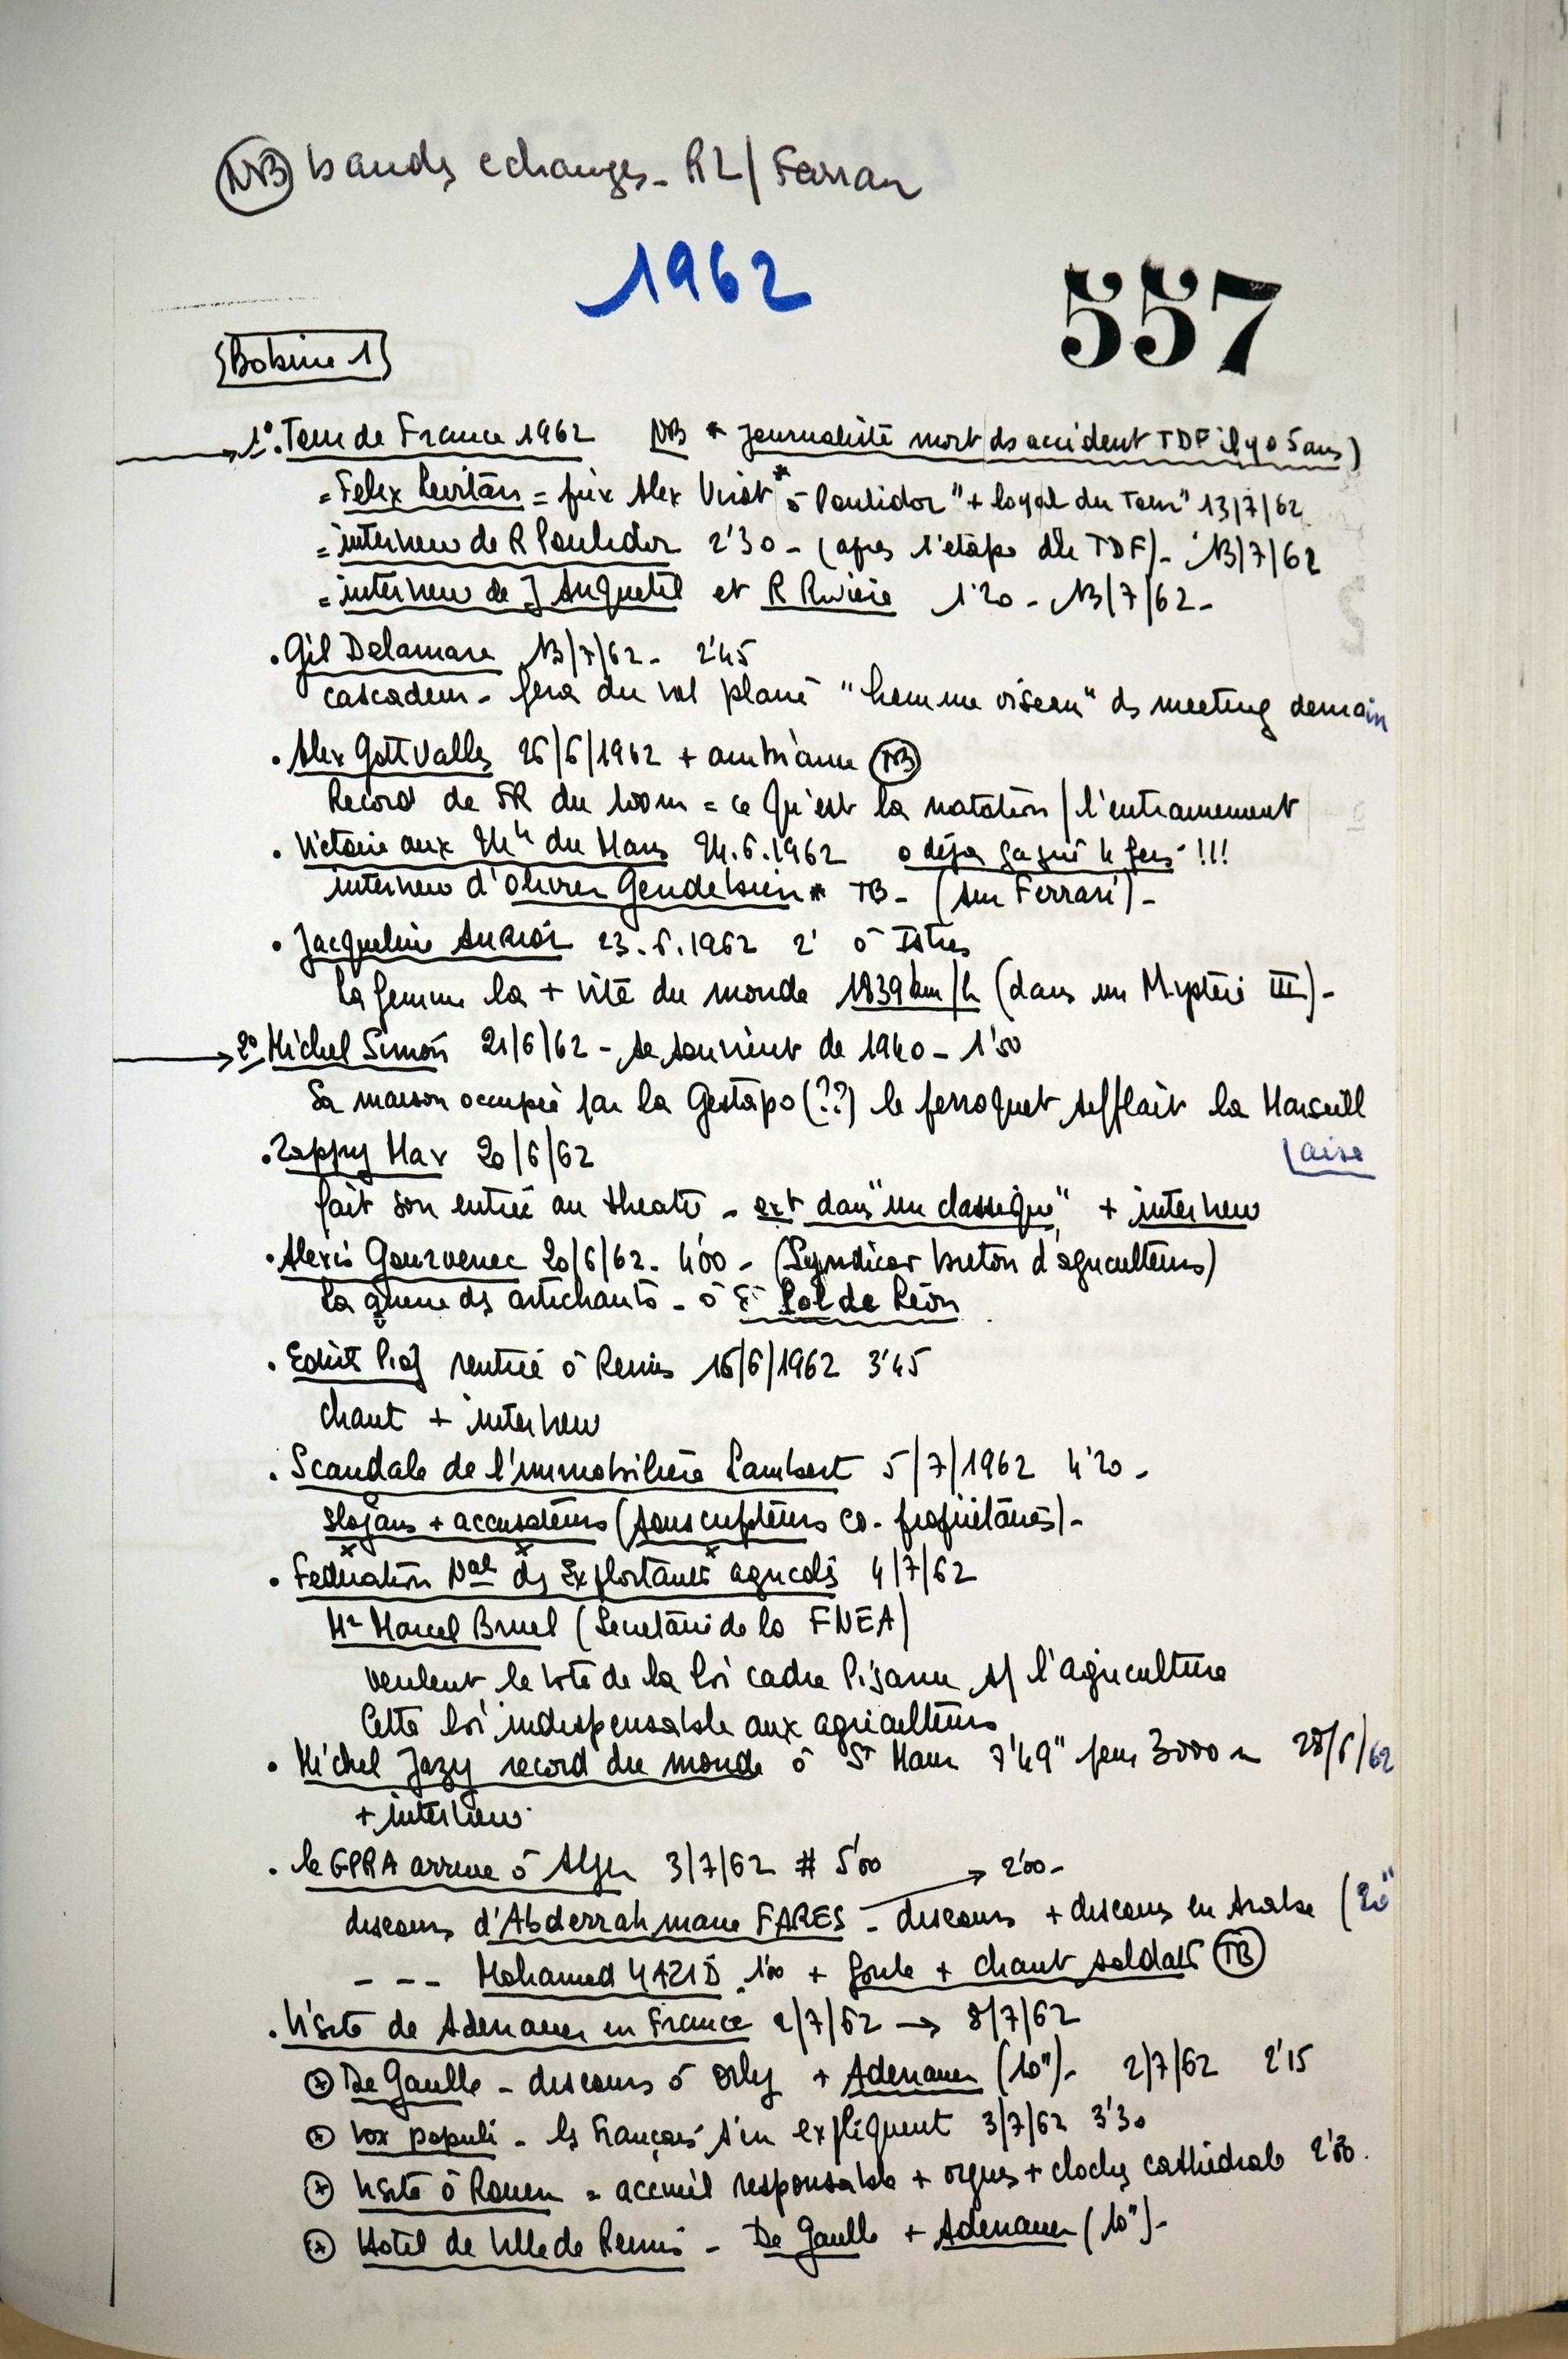 NB bandes echanges - RL/Farran
1962
557
Bobine 1
1° . Tour de France 1962 NB * journaliste mort ds accident TDF il y a 5 ans)
= Felix Levitan = prix Alex Virot * à Poulidor "+ loyal du Tour" 13/7/62
= interview de R Poulidor 2'30 - (apres l'etape du TDF) - 13/7/62
= interview de J Anquetil et R Riviere 1'20 - 13/7/62 -
. Gil Delamare 13/7/62 - 2'45
cascadeur - fera du vol plané "homme oiseau" ds meeting demain
. Alex Gottvalles 26/6/1962 + ambiance NB
Record de FR du 100m = ce qu'est la natation / l'entrainement
. Victoire aux 24h du Mans 24.6.1962 a déja gagné 4 fois !!!
interview d'Olivier Gendebien * TB - (sur Ferrari) -
. Jacqueline Auriol 23.6.1962 2' à Istres
La femme la + vite du monde 1839 km/h (dans un Mystère III) -
2° Michel Simon 21/6/62 - se souvient de 1940 - 1'50
Sa maison occupée par la Gestapo (??) le perroquet sifflait la Marseill
aise
. Zappy Max 20/6/62
fait son entrée au theatre - ext dans "un classique" + interview
. Alexis Gourvenec 20/6/62 - 4'00 - (Syndicat breton d'agriculteurs)
La guerre des artichauts - à St Pol de Léon
. Edith Piaf rentrée à Reims 16/6/1962 3'45
chant + interview
. Scandale de l'immobilière Lambert 5/7/1962 4'20 -
slogans + accusateurs (souscripteurs co-propriétaires) -
. Federation Nale des Exploitants agricoles 4/7/62
Mr Marcel Bruel (Secretaire de la FNEA)
veulent le vote de la loi cadre Pisani s/ l'agriculture
Cette loi indispensable aux agriculteurs
. Michel Jazy record du monde à St Maur 7'49" pour 3000 m 28/6/62
+ interview
. le GPRA arrive à Alger 3/7/62 # 5'00 → 2'00 -
discours d'Abderrahmane FARES - discours + discours en Arabe (20"
- - - Mohamed YAZID 1'00 + foule + chant soldats TB
. Visite de Adenauer en France 2/7/62 → 8/7/62
* De Gaulle - discours à Orly + Adenauer (10") - 2/7/62 2'15
* Vox populi - les français s'en expliquent 3/7/62 3'30
* Visite à Rouen = accueil responsable + orgues + cloches cathédrale
* Hotel de Ville de Reims - De Gaulle + Adenauer (10") -